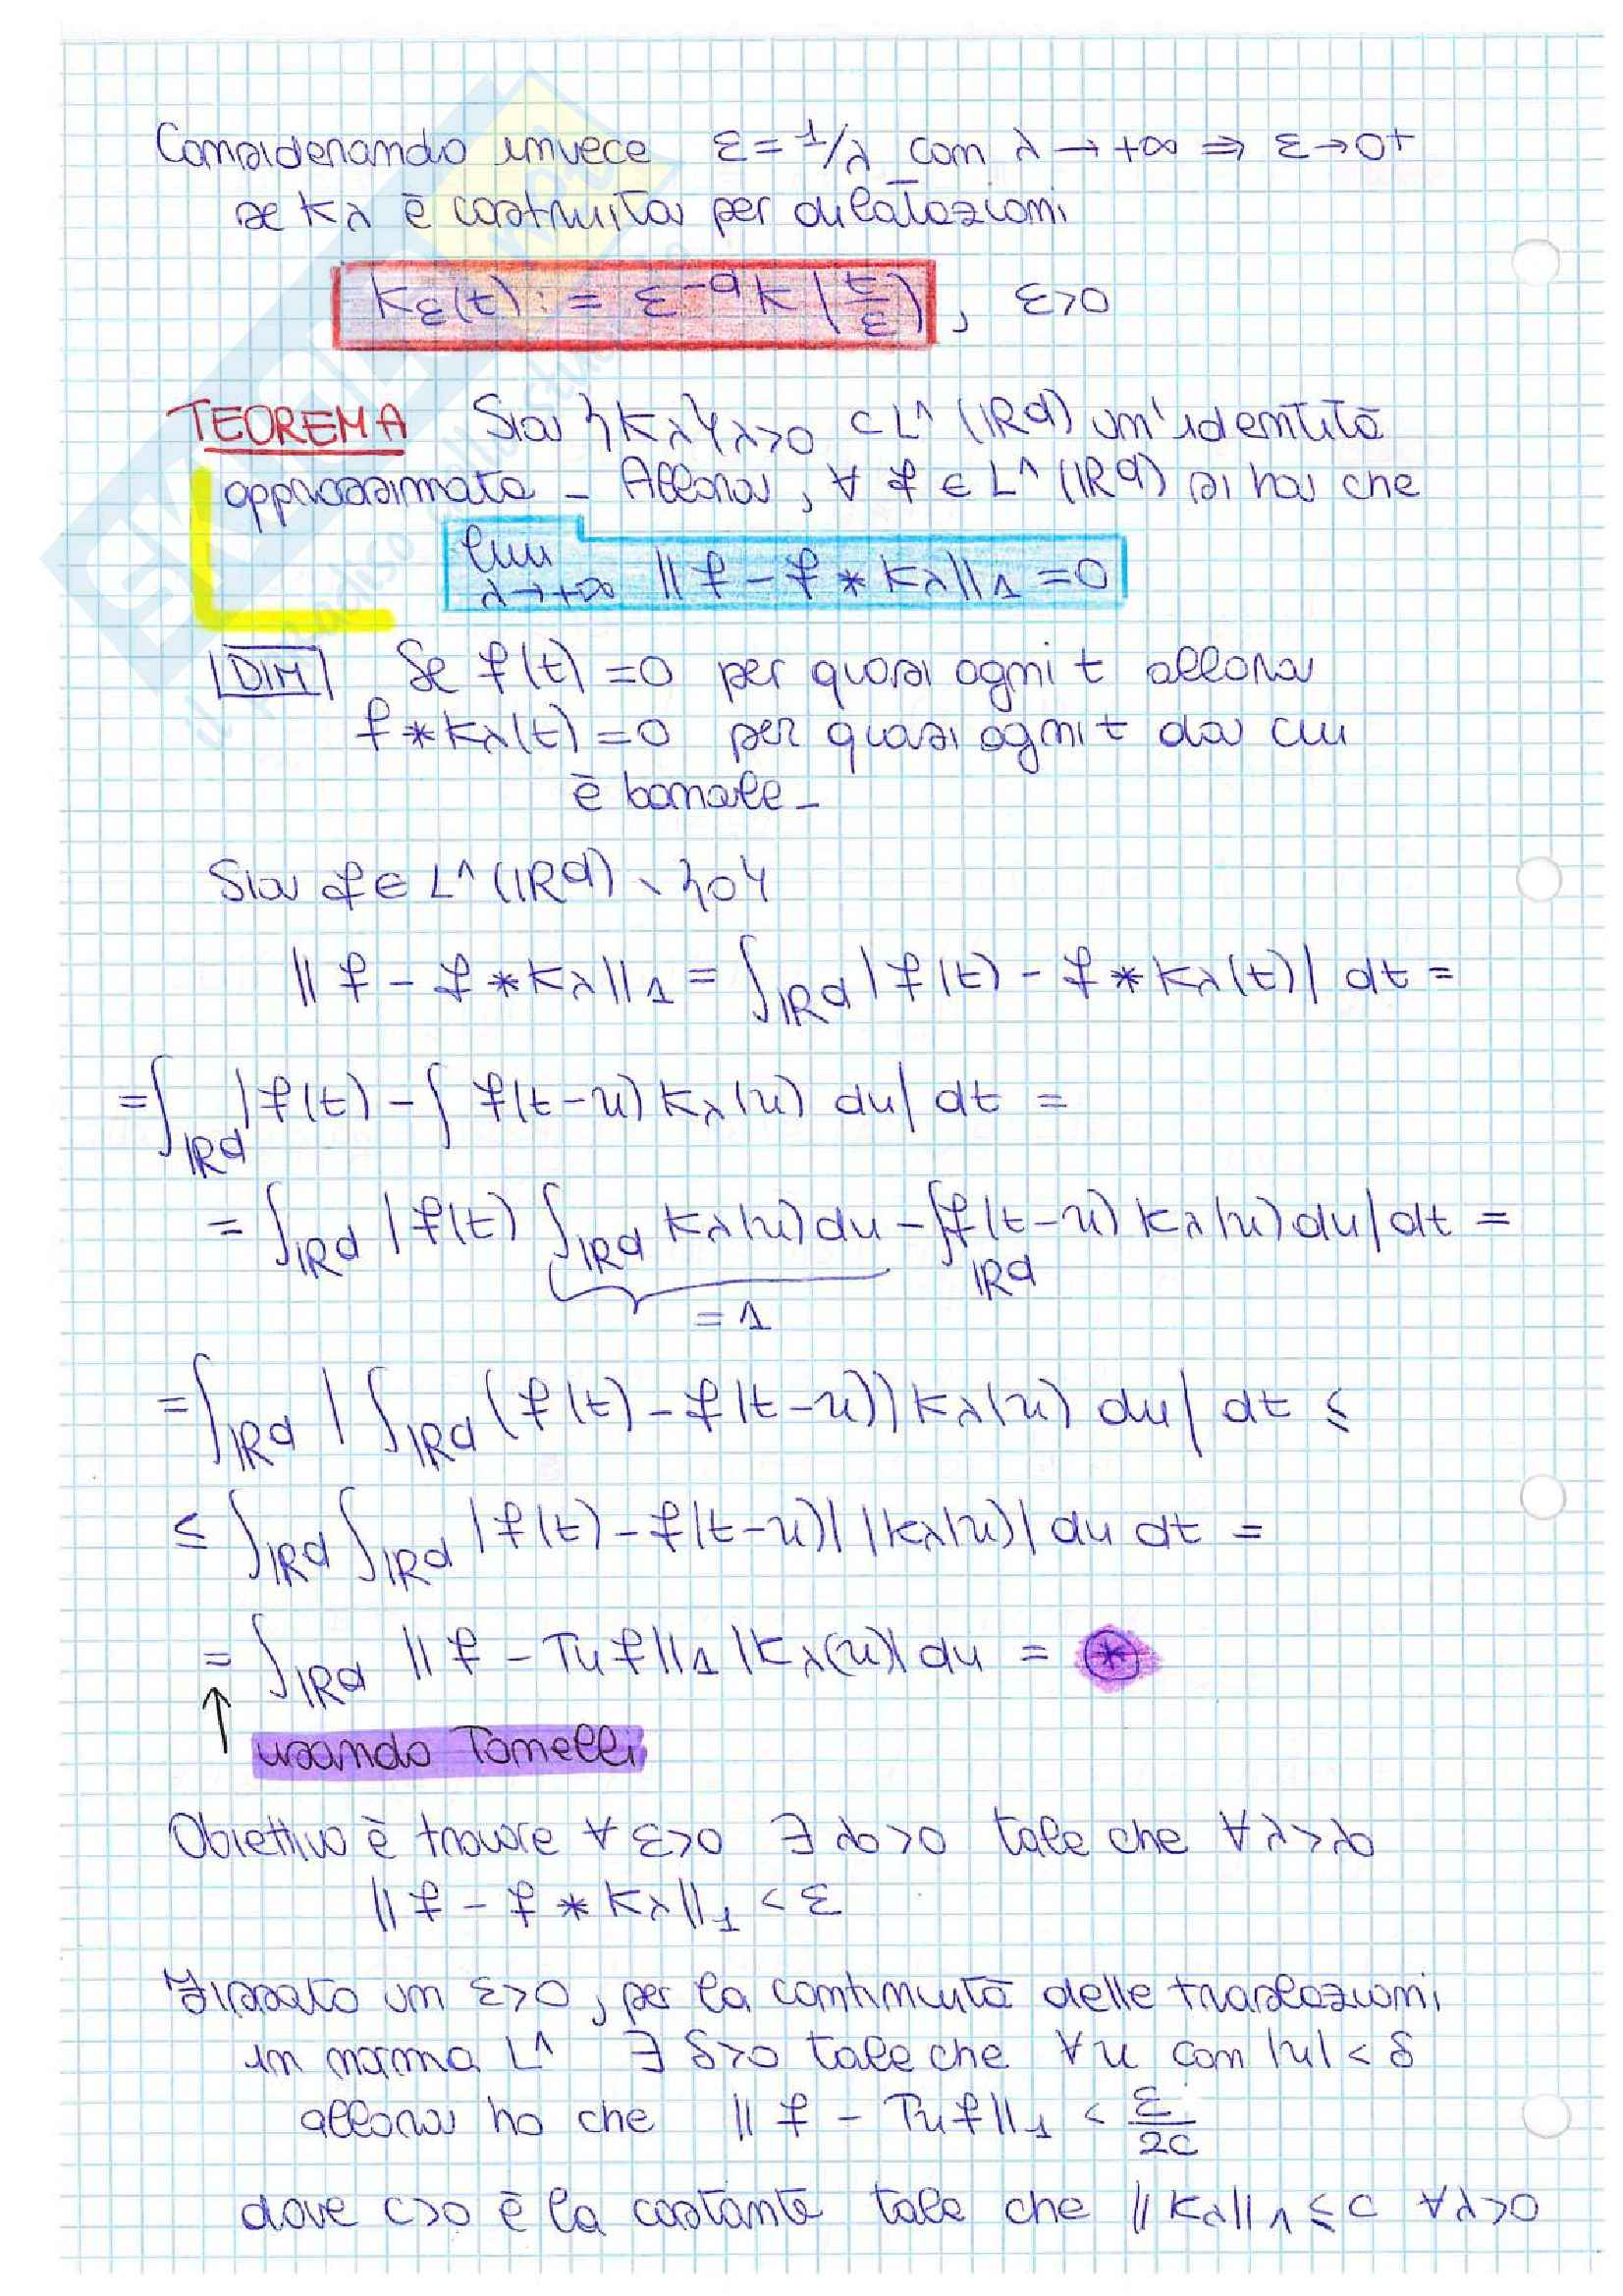 Considerando invece ε = 1/λ con λ → +∞ ⇒ ε → 0+
se Kλ è costruita per dilatazioni
Kε(t) := ε^-d K(t/ε), ε>0
TEOREMA Sia {Kλ}λ>0 ⊂ L¹(ℝᵈ) un'identità
approssimata - Allora, ∀ f ∈ L¹(ℝᵈ) si ha che
lim λ→+∞ ||f - f * Kλ||₁ = 0
|DIM| Se f(t) = 0 per quasi ogni t allora
f * Kλ(t) = 0 per quasi ogni t da cui
è banale -
Sia f ∈ L¹(ℝᵈ) \ {0}
||f - f * Kλ||₁ = ∫ℝᵈ |f(t) - f * Kλ(t)| dt =
= ∫ℝᵈ |f(t) - ∫ f(t-u) Kλ(u) du| dt =
= ∫ℝᵈ |f(t) ∫ℝᵈ Kλ(u) du - ∫ℝᵈ f(t-u) Kλ(u) du| dt =
= 1
= ∫ℝᵈ | ∫ℝᵈ (f(t) - f(t-u)) Kλ(u) du| dt ≤
≤ ∫ℝᵈ ∫ℝᵈ |f(t) - f(t-u)| |Kλ(u)| du dt =
= ∫ℝᵈ ||f - Tu f||₁ |Kλ(u)| du = ⊛
↑ usando Tonelli
Obiettivo è trovare ∀ ε>0 ∃ λ0>0 tale che ∀ λ>λ0
||f - f * Kλ||₁ < ε
Fissato un ε>0, per la continuità delle traslazioni
in norma L¹ ∃ δ>0 tale che ∀u con |u| < δ
allora ho che ||f - Tu f||₁ < ε/2C
dove C>0 è la costante tale che ||Kλ||₁ ≤ C ∀λ>0